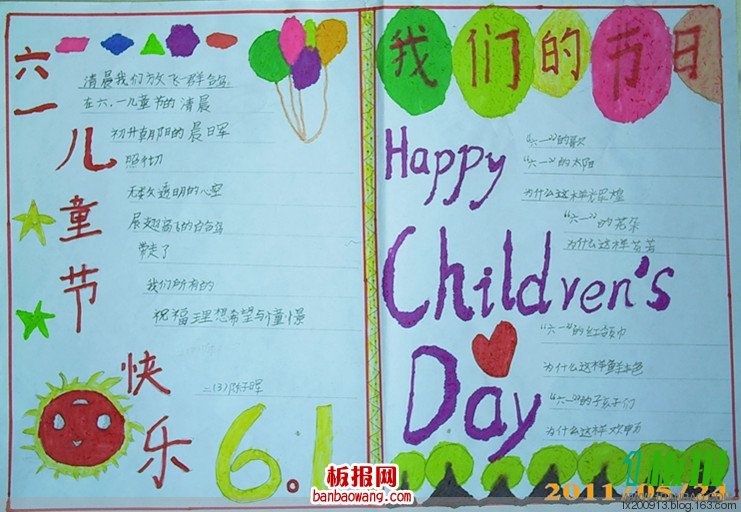 六一儿童节
快乐
清晨我们放飞一群白鸽
在六.一儿童节的清晨
初升朝阳的晨日晖
照彻
无数透明的心空
展翅高飞的白鸽
带走了
我们所有的
祝福理想希望与憧憬
二(3)陈子晖
6.1
我们的节日
Happy
Children's
Day
"六一"的歌
"六一"的太阳
为什么这样光辉煌
"六一"的花朵
为什么这样芬芳
"六一"的红领巾
为什么这样鲜艳
"六一"的孩子们
为什么这样欢
板报网
banbaowang.com
2011.05.24
lx200913.blog.163.com